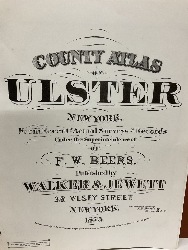 COUNTY ATLAS
OF
ULSTER
NEW YORK.
From Recent & Actual Surveys & Records
Under the Superintendence of
OF
F. W. BEERS.
Published by
WALKER & JEWETT
36 VESEY STREET
NEW YORK.
1875